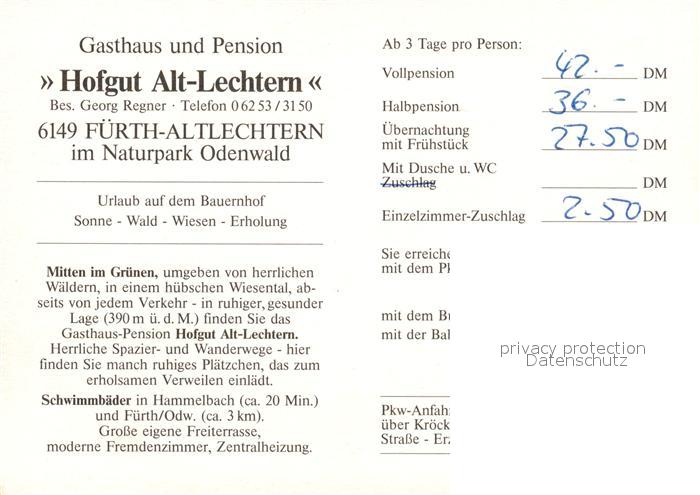 Gasthaus und Pension
» Hofgut Alt-Lechtern «
Bes. Georg Regner · Telefon 0 62 53 / 31 50
6149 FÜRTH-ALTLECHTERN
im Naturpark Odenwald
Urlaub auf dem Bauernhof
Sonne - Wald - Wiesen - Erholung
Mitten im Grünen, umgeben von herrlichen
Wäldern, in einem hübschen Wiesental, ab-
seits von jedem Verkehr - in ruhiger, gesunder
Lage (390 m ü. d. M.) finden Sie das
Gasthaus-Pension Hofgut Alt-Lechtern.
Herrliche Spazier- und Wanderwege - hier
finden Sie manch ruhiges Plätzchen, das zum
erholsamen Verweilen einlädt.
Schwimmbäder in Hammelbach (ca. 20 Min.)
und Fürth/Odw. (ca. 3 km).
Große eigene Freiterrasse,
moderne Fremdenzimmer, Zentralheizung.
Ab 3 Tage pro Person:
Vollpension 42.- DM
Halbpension 36.- DM
Übernachtung
mit Frühstück 27.50 DM
Mit Dusche u. WC
Zuschlag DM
Einzelzimmer-Zuschlag 2.50 DM
Sie erreiche
mit dem
mit dem
mit der
Pkw-Anfah
über Kröck
Straße -
privacy protection
Datenschutz